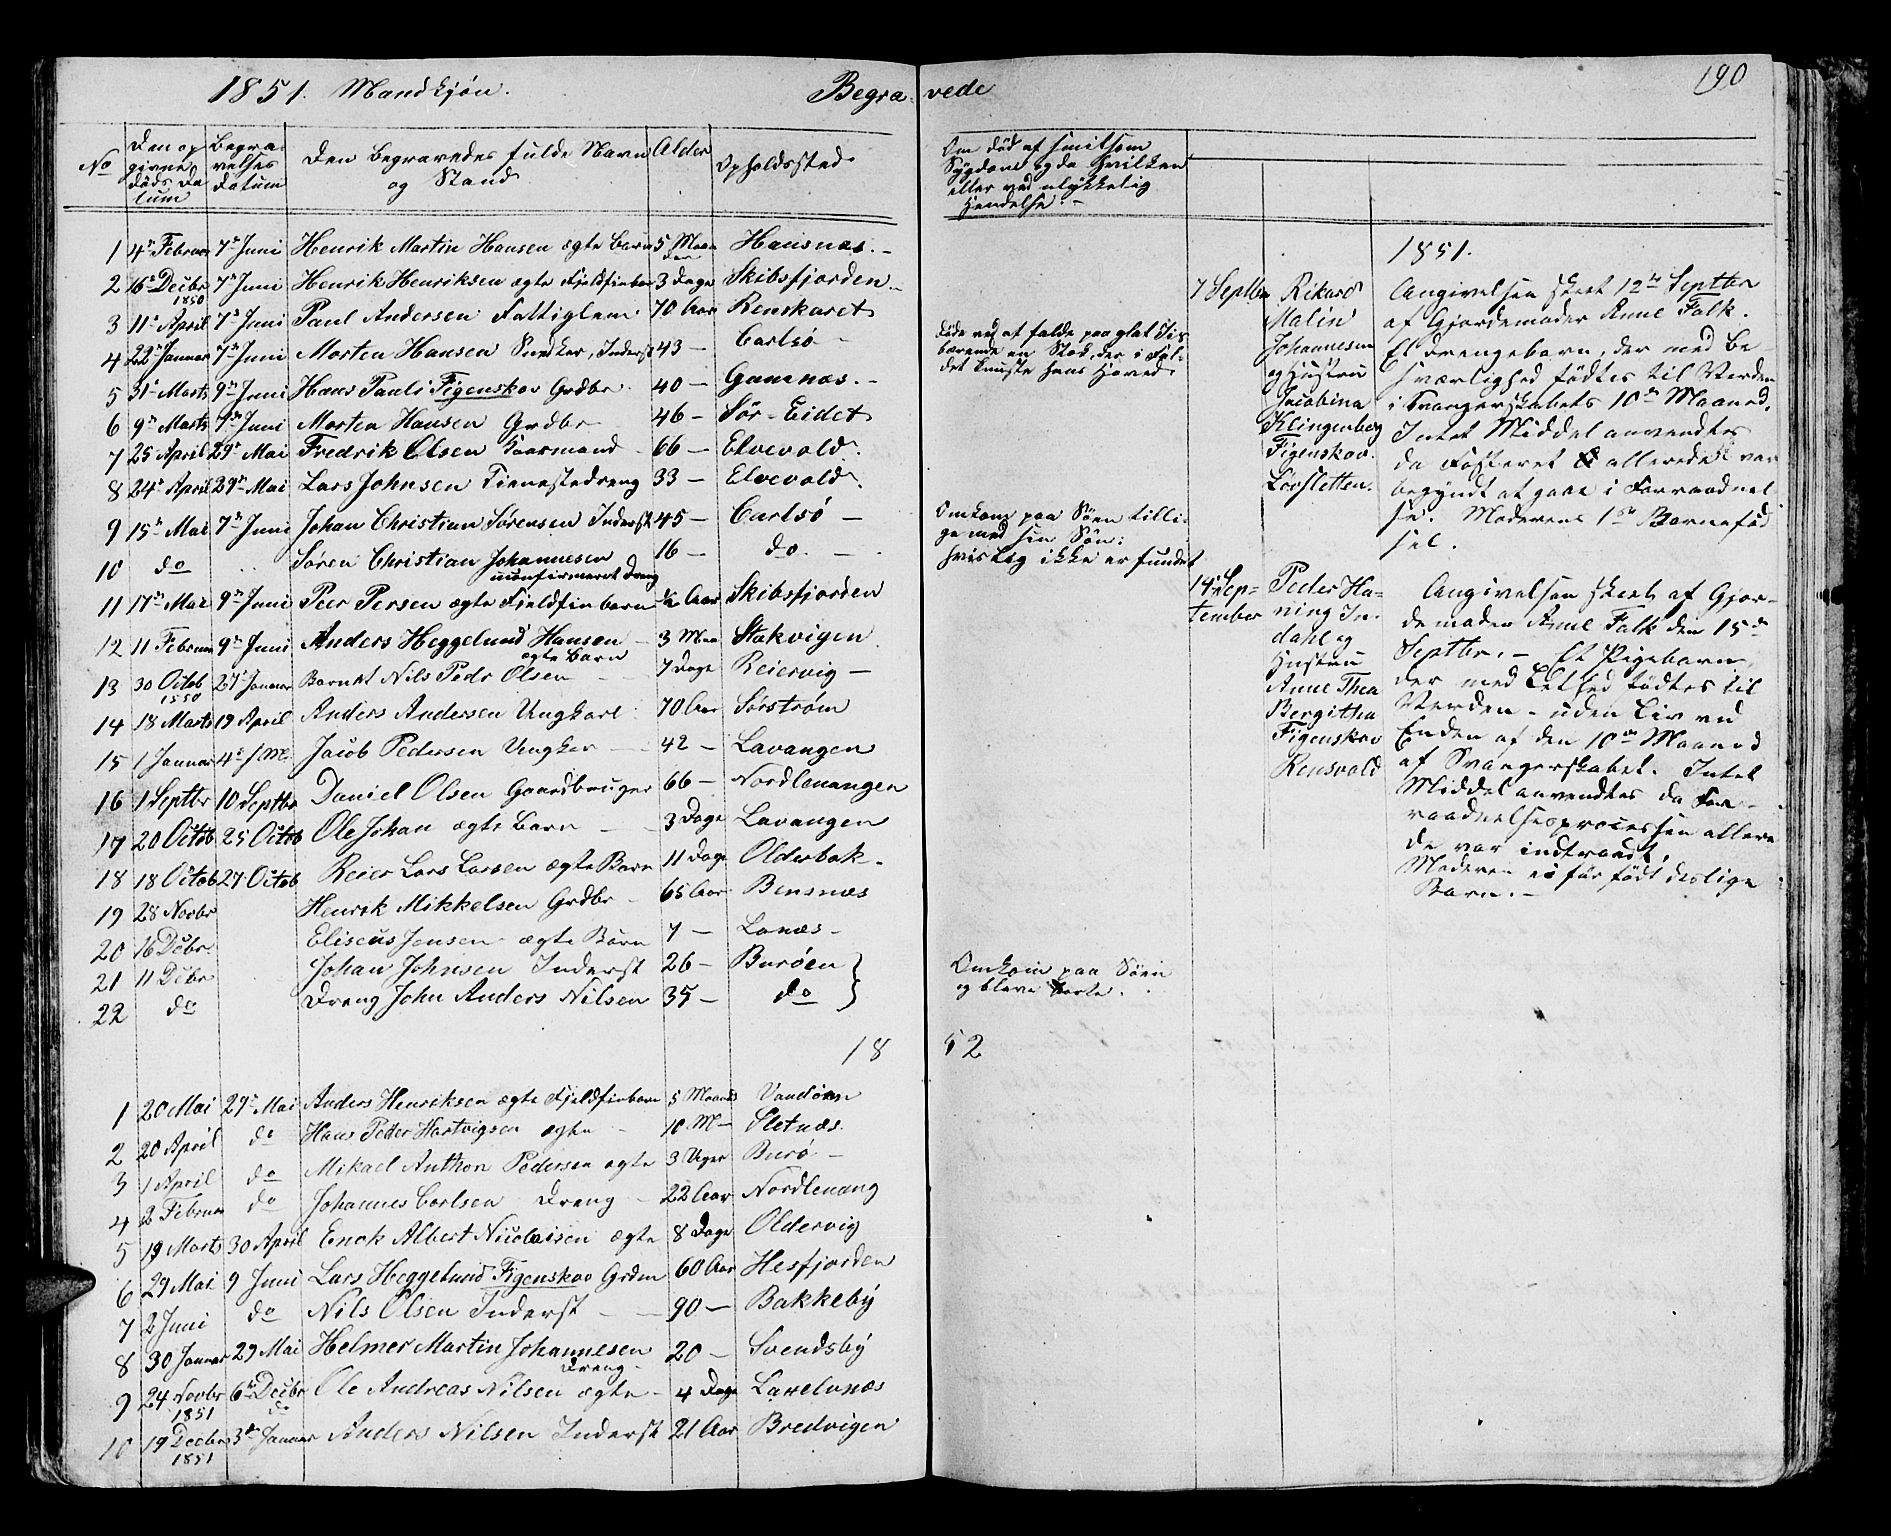 1851. Mandkjøn. Begra- vede 190
No
Den op
givne
Døds Da
tum
Begra-
velses
Datum
Den Begravedes fulde Navn
og Stand
Alder
Opholdssted
Om død af smitsom
Sygdom og da hvilken
eller ved ulykkelig
Hændelse. -
1 4de Februar 7de Juni Henrik Martin Hansen ægte Barn 5 Maaneder Hansnæs. -
2 16de Decbr 1850 7de Juni Henrik Henriksen ægte Fjeldfinbarn 3 Dage Skibsfjorden -
3 11te April 7de Juni Paul Andersen Fattiglem 70 Aar Renskaret
4 22de Januar 7de Juni Morten Hansen Inderst 43 - Carlsø -
5 31te Marts 9de Juni Hans Pauli Figenskov Grdbr. 40 - Gamnæs. -
6 9de Marts 9de Juni Morten Hansen Grdbr 46 - Sør-Eidet
7 25 April 29de Mai Fredrik Olsen Kaarmand 66 - Elvevold.
8 24de April 29de Mai Lars Johnsen Tienestedreng 33 - Elvevold.
9 15de Mai 7de Juni Johan Christian Sørensen Inderst 45 - Carlsø -
10 do Søren Christian Johannesen 16 - do. -
uconfirmeret Dreng
11 17de Mai 9de Juni Peer Persen ægte Fjeldfinbarn ½ Aar Skibsfjorden
12 11 Februar 9de Juni Anders Heggelund Hansen 3 Maa Stakvigen
ægte Barn
13 30 Octob 1850 27 Januar Barnet Nils Pedr Olsen 7 Dage Reiervig -
14 18 Marts 19 April Anders Andersen Ungkarl 70 Aar Sørstrøm
15 1 Januar 4de Jacob Pedersen Ungkar 42 - Lavangen
16 1 Septbr 10 Septbr Daniel Olsen Gaardbruger 66 - Nordlenangen
17 20 Octob 25 Octob Ole Johan ægte Barn 3 Dage Lavangen
18 18 Octob 27 Octob Reier Lars Larsen ægte Barn 11 Dage Olderbak -
19 28 Novbr Henrik Mikkelsen Grdbr 65 Aar Bensnæs
20 16 Debr. Eliseus Jensen - ægte Barn 7 - Lanæs -
21 11 Debr Johan Johnsen Inderst 26 - Burøen
22 do Dreng John Anders Nilsen 35 - do
døde ved at falde paa glat Iis
bærende en Stok, der i Fal-
det knuste hans Hoved.
Omkom paa Søen tilli-
ge med sin Søn:
hvis Lig ikke er fundet
Omkom paa Søen
og bleve borte.
7 Septbr
Rikard
Malin
Johannesen
og Hustru
Jacobina
Klingenberg
Figenskov.
Lovsletten.
1851.
Angivelsen skeet 12te Septbr
af Gjordemoder Anne Falk.
Et Drengebarn, der med Be
sværlighed fødtes til Verden
i Svangerskabets 10de Maaned.
Intet Middel anvendtes
da Fosteret allerede var
begyndt at gaae i Forraadnel
se. Moderens 1ste Barnefød
sel.
14 Sep-
tember
Peder Ha-
ning In-
dahl og
Hustru
Anne Thea
Bergitha
Figenskov
Rensvold
Angivelsen skeet af Gjor-
demoder Anne Falk den 15de
Septbr. - Et Pigebarn,
der med Lethed fødtes til
Verden - uden Liv ved
Enden af den 10de Maaned
af Svangerskabet. Intet
Middel anvendtes da For-
raadnelsesprocessen allere
de var indtraadt.
Moderen ei før født deslige
Barn. -
18 52
1 20 Mai 29de Mai Anders Henriksen ægte Fjeldfinbarn 5 Maaneds Vandøen
2 20 April do Hans Peder Hartvigsen ægte - 10 M - Sletnæs.
3 1 April do Mikael Anthon Pedersen ægte 3 Uger Burø -
4 2 Februar do Johannes Carlsen Dreng - 22 Aar Nordlenang
5 19 Marts 30 April Enok Albert Nicolaisen ægte 8 Dage Oldervig
6 29 Mai 9 Juni Lars Heggelund Figenskov Grdm 60 Aar Hesfjorden
7 2 Juni do Nils Olsen Inderst 90 - Bakkeby
8 30 Januar 29 Mai Helmer Martin Johannesen 20 - Svendsby
Dreng -
9 24 Novbr 1851 6te Decbr do Ole Andreas Nilsen ægte - 4 Dage Laxelvnæs
10 19 Decbr 1851 3die Januar Anders Nilsen Inderst 21 Aar Bredvigen